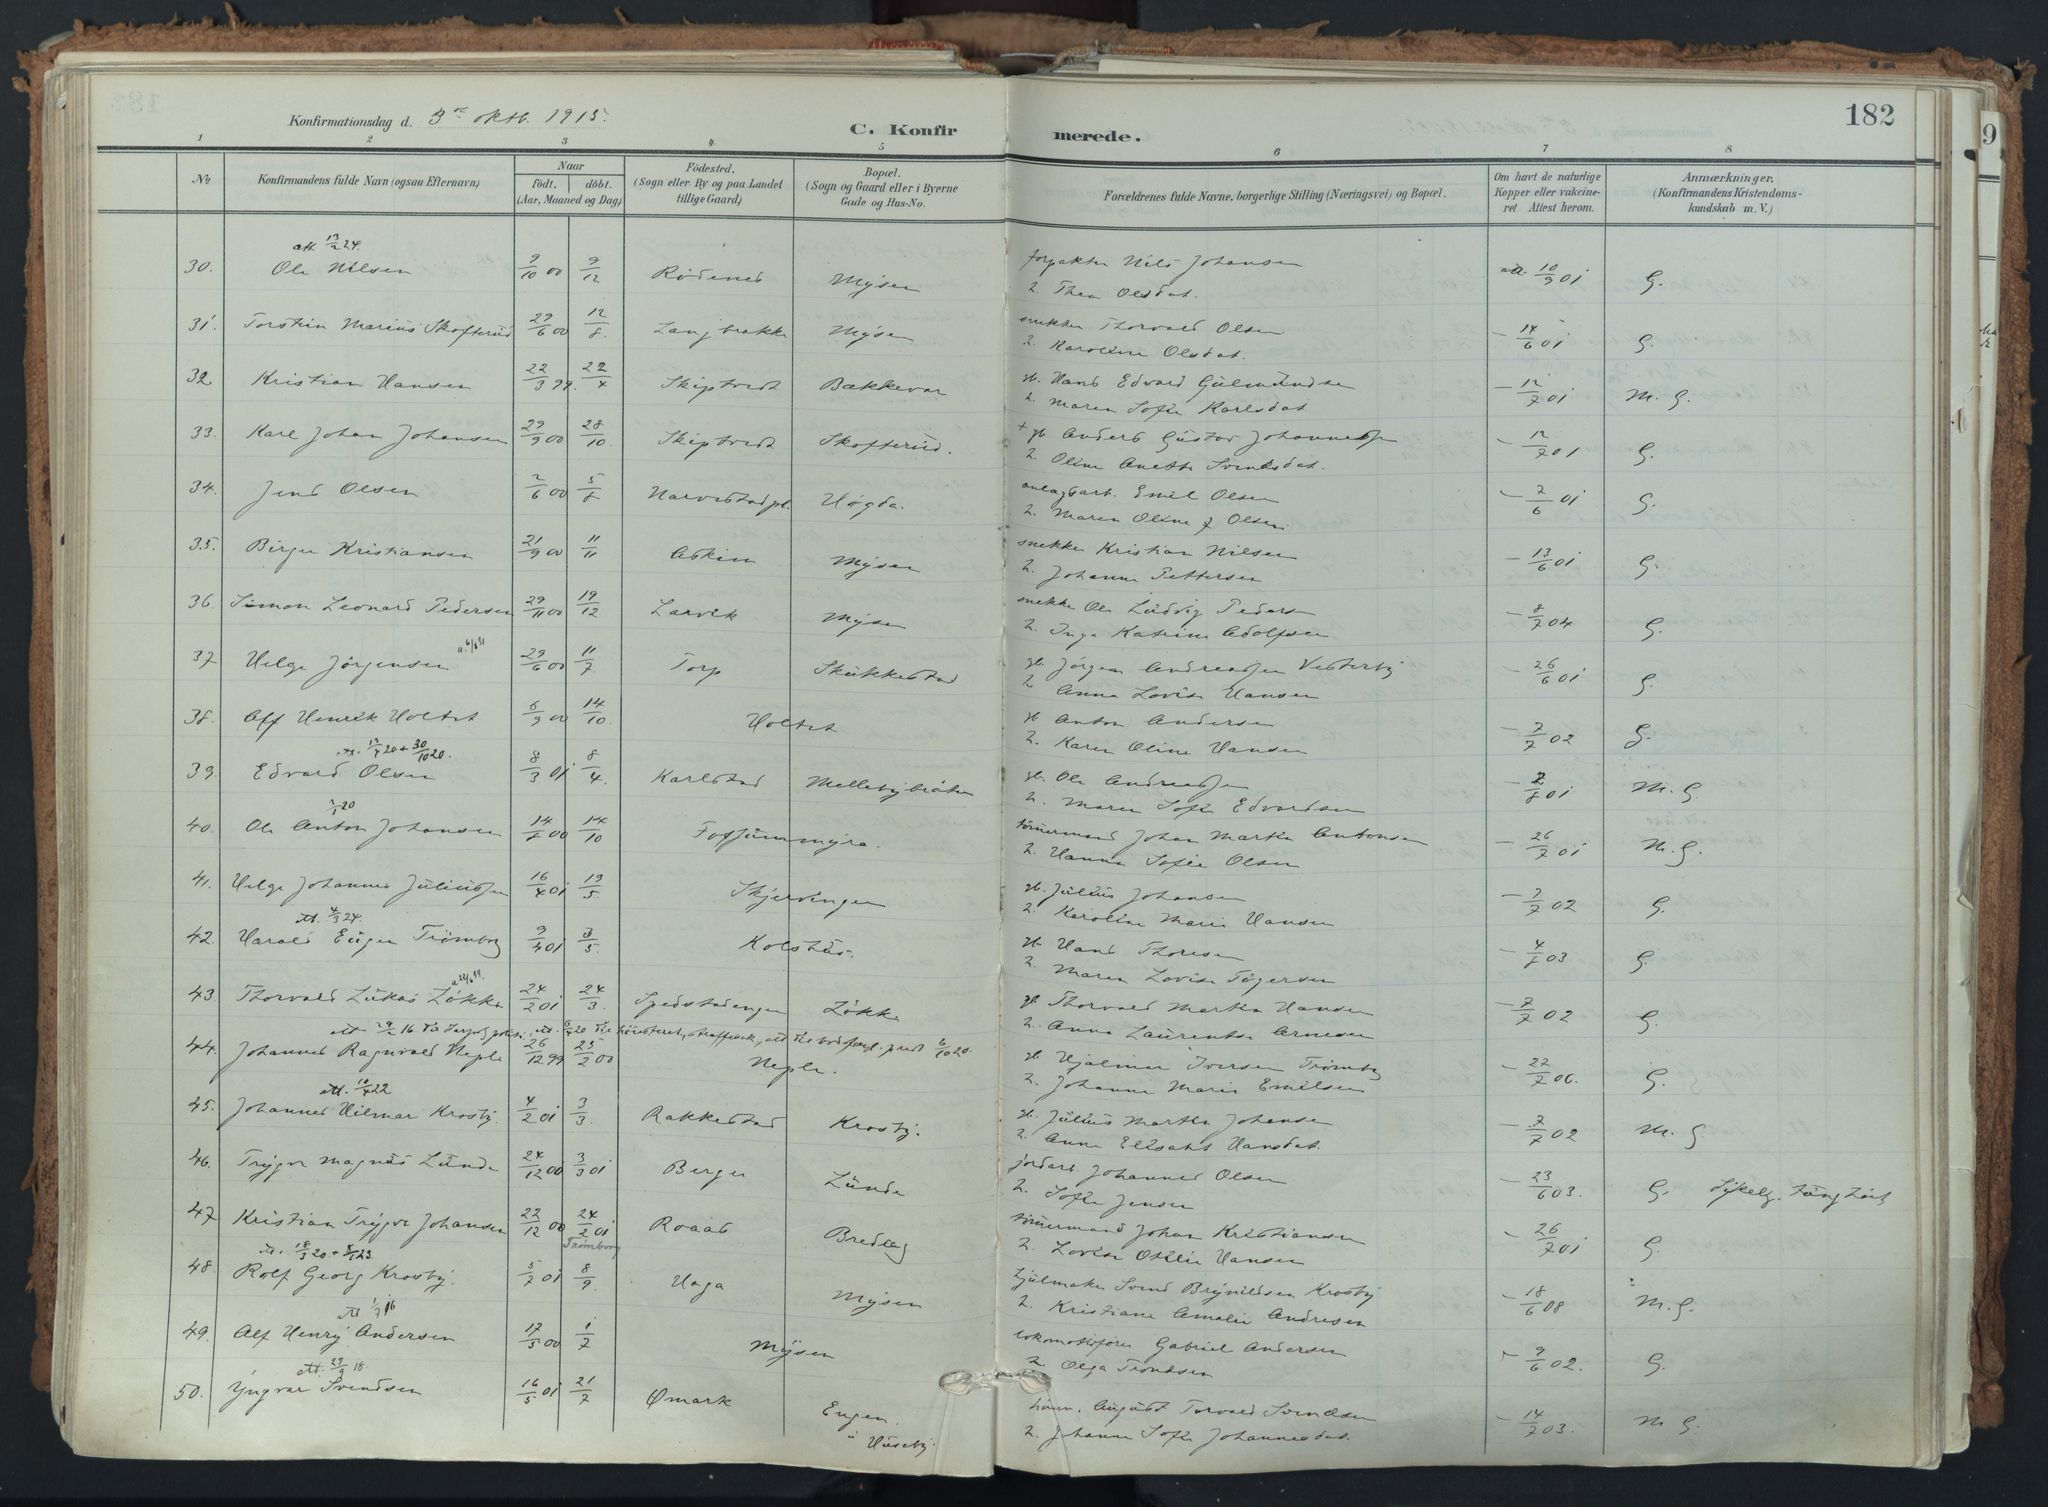 182
Konfirmationsdag d. 3die oktb. 1915.
C. Konfirmerede.
1 2 3 4 5 6 7 8
No
Konfirmandens fulde Navn (ogsaa Efternavn)
Naar
födt. döbt.
(Aar, Maaned og Dag)
Födested.
(Sogn eller By og paa Landet
tillige Gaard)
Bopæl.
(Sogn og Gaard eller i Byerne
Gade og Hus-No.
Forældrenes fulde Navne, borgerlige Stilling (Næringsvei) og Bopæl.
Om havt de naturlige
Kopper eller vakcine-
ret Attest herom.
Anmærkninger,
(Konfirmandens Kristendoms-
kundskab m. V.)
att. 13/2 24.
30. Ole Nilsen 9/10 00 9/12 Rødenes Mysen forpakter Nils Johansen att. 10/9 01 G.
2. Thea Olsdat.
31. Torstein Marius Skofterud 29/6 00 12/8. Langbrække Mysen snekker Thorvald Olsen - 14/6 01 G.
2. Karoline Olsdat.
32 Kristian Hansen 22/3 99. 22/4 Skiptvedt Bækkevar gb. Hans Edvard Gulmundsen - 12/7 01 M. G.
2. Maren Sofie Karlsdat
33. Karl Johan Johansen 29/9 00 28/10. Skiptvedt Skofterud. + gb Anders Gustav Johannessen - 12/7 01 G.
2. Oline Anette Svendsdat.
34. Jens Olsen 2/6 00 5/8 Narvestadpl. Høgda. anlægsarb. Emil Olsen - 7/6 01 G.
2. Maren Oline J Olsen.
35. Birger Kristiansen 21/9 00 11/11 Askim Mysen snekker Kristian Nilsen - 13/6 01 G.
2. Johanne Pettersen
36. Simon Leonard Pedersen 29/11 00 19/12 Larvik Mysen snekker Ole Ludvig Pedersen - 8/7 04 G.
2. Inga Katrine Adolfsen
a. 6/6 31
37 Helge Jörgensen 29/6 00 11/7. Torp Skukkestad gb. Jörgen Andreassen Vesterby - 26/6 01 G.
2 Anna Lovise Hansen
38. Alf Henrik Holtet 6/9 00 14/10. Holtet gb Anton Andersen - 7/7 02 G.
2. Karen Oline Hansen
att. 13/4 20 + 30/10 20.
39. Edvard Olsen 8/3 01 8/4. Karlstad Mellebybråten gb. Ole Andreassen - 2/8 01 M. G.
2. Maren Sofie Edvardsen
7/1 20
40. Ole Anton Johansen 14/8 00 14/10 Fossummyra. tömmermand Johan Martin Antonsen - 26/7 01 M. G.
2. Hanna Sofie Olsen
41. Helge Johannes Juliussen 16/4 01 19/5. Skjervingen gb. Julius Johansen - 7/7 02 G.
2. Karoline Marie Hansen
att. 4/3 24.
42. Harald Eugen Trømborg 9/4 01 3/5. Kolshus. gb. Hans Thoresen - 4/8 03 G.
2. Maren Lovise Tögersen
43. Thorvald Lukas Løkke 24/2 01 24/3. Løkke gb. Thorvald Martin Hansen - 7/7 02 G.
2. Anna Laurentse Arnesen
44. Johannes Ragnvald Neple 26/12 99 25/2 00 Neple. gb Hjalmar Iversen Trømborg - 27/7 06. G.
2. Johanne Marie Emilsen
att. 10/4 22
45. Johannes Hilmar Krosby. 4/2 01 3/3. Rakkestad Krosby. gb. Julius Martin Johansen - 7/7 02 M. G
2. Anne Elisabet Hansdat.
46. Trygve Magnus Lunde 24/12 00 3/3 01 Berger Lunde jordarb. Johannes Olsen - 23/6 03. G.
2. Sofie Jensen
47 Kristian Trygve Johansen 22/12 00 24/2 01 Roaas Bredleg tömmermand Johan Kristiansen - 26/7 01 G.
Trømborg
2. Lovise Otilie Hansen
48. Rolf Georg Krosby. 5/7 01 8/9. Haga Mysen hjulmaker Svend Brynildsen Krosby - 18/6 08 M. G.
2. Kristiane Amalie Andresen
49. Alf Henry Andersen 17/5 00 1/7 Mysen lokomotivfører Gabriel Andersen - 9/6 02. G.
2. Olga Trondsen
att. 29/9 18
50. Yngvar Svendsen 16/5 01 21/7 Ømark Engen. August Torvald Svendsen - 14/7 03. M G.
u Huseby. 2. Johanne Sofie Johannesdat.